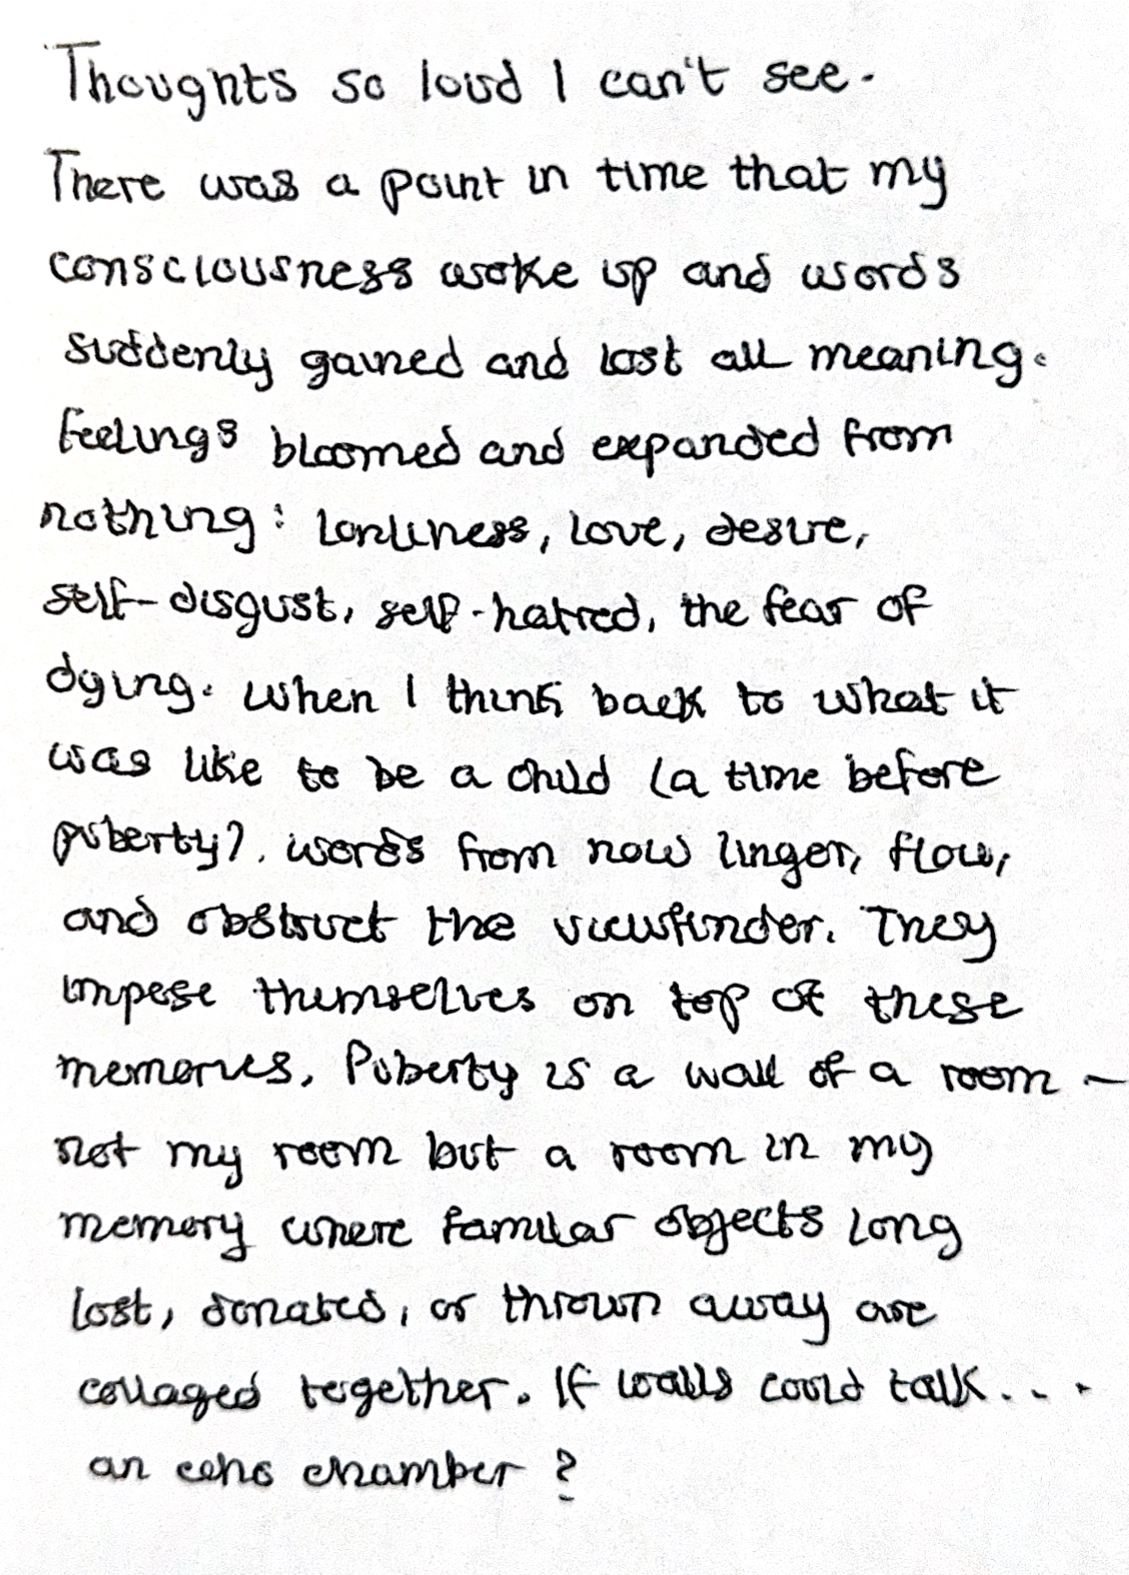 Thoughts so loud I can't see.
There was a point in time that my
consciousness woke up and words
suddenly gained and lost all meaning.
feelings bloomed and expanded from
nothing: lonliness, love, desire,
self-disgust, self-hatred, the fear of
dying. When I think back to what it
was like to be a child (a time before
puberty), words from now linger, flow,
and obstruct the viewfinder. They
impose themselves on top of these
memories. Puberty is a wall of a room —
not my room but a room in my
memory where familiar objects long
lost, donated, or thrown away are
collaged together. If walls could talk...
an echo chamber?